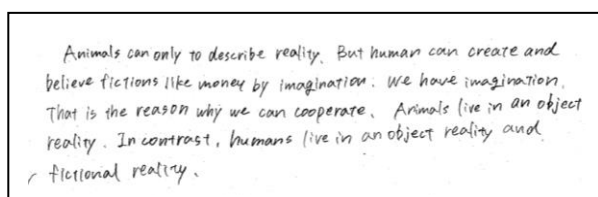 Animals can only to describe reality. But human can create and
believe fictions like money by imagination. We have imagination.
That is the reason why we can cooperate. Animals live in an object
reality. In contrast, humans live in an object reality and
fictional reality.